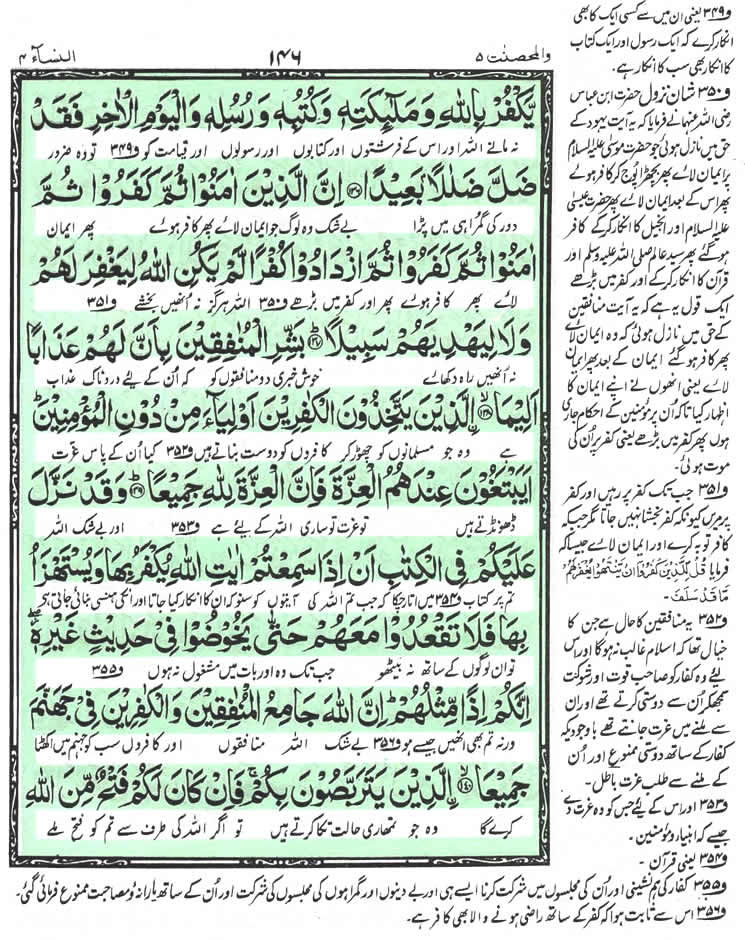 والمحصنٰت ۵
۱۴۶
النسآء ۴
يَّكْفُرْ بِاللّٰهِ وَمَلٰٓئِكَتِهٖ وَكُتُبِهٖ وَرُسُلِهٖ وَالْيَوْمِ الْاٰخِرِ فَقَدْ
نہ مانے اللہ اور اس کے فرشتوں اور کتابوں اور رسولوں اور قیامت کو و۳۴۹ تو وہ ضرور
ضَلَّ ضَلٰلًاۢ بَعِيْدًا ﴿۱۳۶﴾ اِنَّ الَّذِيْنَ اٰمَنُوْا ثُمَّ كَفَرُوْا ثُمَّ
دور کی گمراہی میں پڑا بے شک وہ لوگ جو ایمان لائے پھر کافر ہوئے پھر ایمان
اٰمَنُوْا ثُمَّ كَفَرُوْا ثُمَّ ازْدَادُوْا كُفْرًا لَّمْ يَكُنِ اللّٰهُ لِيَغْفِرَ لَهُمْ
لائے پھر کافر ہوئے پھر اور کفر میں بڑھے و۳۵۰ اللہ ہرگز نہ اُنھیں بخشے و۳۵۱
وَلَا لِيَهْدِيَهُمْ سَبِيْلًا ﴿۱۳۷﴾ بَشِّرِ الْمُنٰفِقِيْنَ بِاَنَّ لَهُمْ عَذَابًا
نہ اُنھیں راہ دکھائے خوش خبری دو منافقوں کو کہ اُن کے لیے دردناک عذاب
اَلِيْمًا ﴿۱۳۸﴾ الَّذِيْنَ يَتَّخِذُوْنَ الْكٰفِرِيْنَ اَوْلِيَآءَ مِنْ دُوْنِ الْمُؤْمِنِيْنَ
ہے وہ جو مسلمانوں کو چھوڑ کر کافروں کو دوست بناتے ہیں و۳۵۲ کیا اُن کے پاس عزت
اَيَبْتَغُوْنَ عِنْدَهُمُ الْعِزَّةَ فَاِنَّ الْعِزَّةَ لِلّٰهِ جَمِيْعًا ﴿۱۳۹﴾ وَقَدْ نَزَّلَ
ڈھونڈتے ہیں تو عزت تو ساری اللہ کے لیے ہے و۳۵۳ اور بے شک اللہ
عَلَيْكُمْ فِى الْكِتٰبِ اَنْ اِذَا سَمِعْتُمْ اٰيٰتِ اللّٰهِ يُكْفَرُ بِهَا وَيُسْتَهْزَاُ
تم پر کتاب و۳۵۴ میں اتار چکا کہ جب تم اللہ کی آیتوں کو سنو کہ ان کا انکار کیا جاتا اور انکی ہنسی بنائی جاتی ہے
بِهَا فَلَا تَقْعُدُوْا مَعَهُمْ حَتّٰى يَخُوْضُوْا فِىْ حَدِيْثٍ غَيْرِهٖٓ
تو ان لوگوں کے ساتھ نہ بیٹھو جب تک وہ اور بات میں مشغول نہ ہوں و۳۵۵
اِنَّكُمْ اِذًا مِّثْلُهُمْ اِنَّ اللّٰهَ جَامِعُ الْمُنٰفِقِيْنَ وَالْكٰفِرِيْنَ فِىْ جَهَنَّمَ
ورنہ تم بھی انھیں جیسے ہو و۳۵۶ بے شک اللہ منافقوں اور کافروں سب کو جہنم میں اکٹھا
جَمِيْعًا ﴿۱۴۰﴾ الَّذِيْنَ يَتَرَبَّصُوْنَ بِكُمْ فَاِنْ كَانَ لَكُمْ فَتْحٌ مِّنَ اللّٰهِ
کرے گا وہ جو تمھاری حالت تکا کرتے ہیں تو اگر اللہ کی طرف سے تم کو فتح ملے
و۳۴۹ یعنی ان میں سے کسی ایک کا بھی
انکار کرے کہ ایک رسول اور ایک کتاب
کا انکار بھی سب کا انکار ہے۔
و۳۵۰ شان نزول حضرت ابن عباس
رضی اللہ عنہما نے فرمایا کہ یہ آیت یہود کے
حق میں نازل ہوئی جو حضرت موسیٰ علیہ السلام
پر ایمان لائے پھر بچھڑا پوج کر کافر ہوئے
پھر اس کے بعد ایمان لائے پھر حضرت عیسیٰ
علیہ السلام اور انجیل کا انکار کرکے کافر
ہوگئے پھر سید عالم صلی اللہ علیہ وسلم اور
قرآن کا انکار کرکے اور کفر میں بڑھے
ایک قول یہ ہے کہ یہ آیت منافقین
کے حق میں نازل ہوئی کہ وہ ایمان لائے
پھر کافر ہوگئے ایمان کے بعد پھر ایمان
لائے یعنی انھوں نے اپنے ایمان کا
اظہار کیا تاکہ اُن پر مؤمنین کے احکام جاری
ہوں پھر کفر میں بڑھے یعنی کفر پر اُن کی
موت ہوئی۔
و۳۵۱ جب تک کفر پر رہیں اور کفر
پر مریں کیونکہ کفر بخشا نہیں جاتا مگر جب کہ
کافر توبہ کرے اور ایمان لائے جیسا کہ
فرمایا قُلْ لِّلَّذِيْنَ كَفَرُوْۤا اِنْ يَّنْتَهُوْا يُغْفَرْ لَهُمْ
مَّا قَدْ سَلَفَ۔
و۳۵۲ یہ منافقین کا حال ہے جن کا
خیال تھا کہ اسلام غالب نہ ہوگا اور اس
لیے وہ کفار کو صاحب قوت اور شوکت
سمجھ کر اُن سے دوستی کرتے تھے اور ان
سے ملنے میں عزت جانتے تھے باوجودیکہ
کفار کے ساتھ دوستی ممنوع اور اُن
کے ملنے سے طلب عزت باطل۔
و۳۵۳ اور اس کے لیے جس کو وہ عزت دے
جیسے کہ انبیاء و مؤمنین۔
و۳۵۴ یعنی قرآن۔
و۳۵۵ کفار کی ہم نشینی اور اُن کی مجلسوں میں شرکت کرنا ایسے ہی اور بے دینوں اور گمراہوں کی مجلسوں کی شرکت اور اُن کے ساتھ یارانہ و مصاحبت ممنوع فرمائی گئی۔
و۳۵۶ اس سے ثابت ہوا کہ کفر کے ساتھ راضی ہونے والا بھی کافر ہے۔